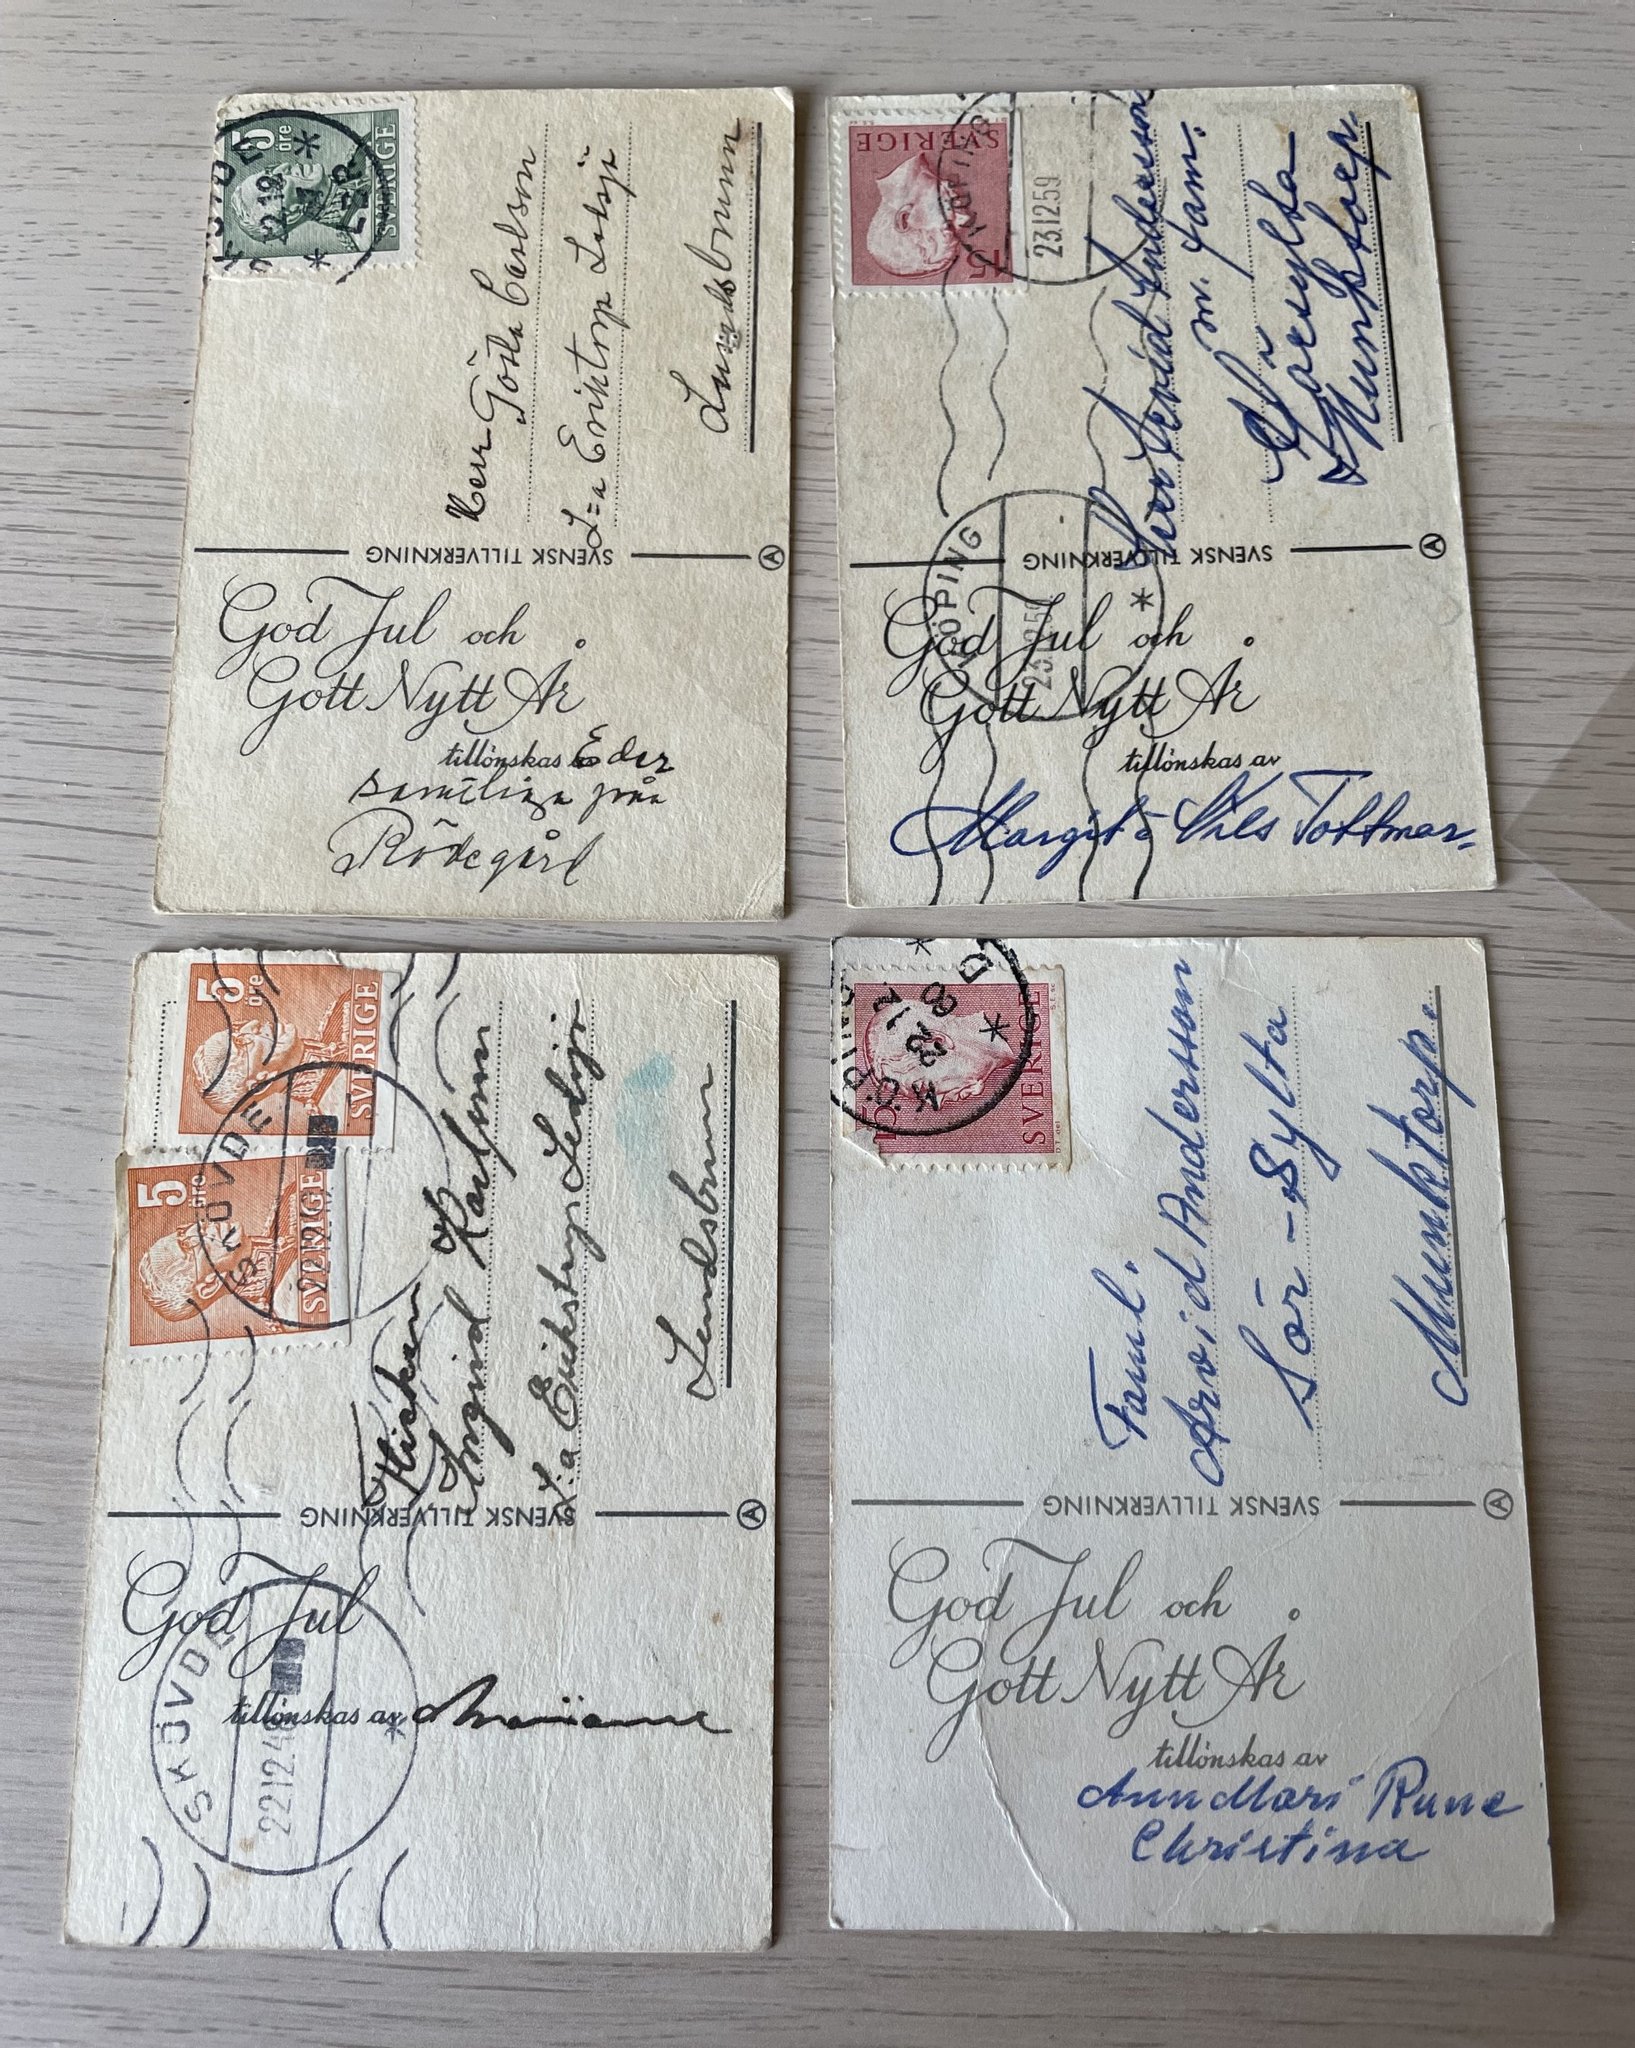 5
öre
SVERIGE
SKÖVDE
22.12
LBR
Herr Gösta Carlson
L=a Eriktorp Ledsjö
Lundsbrunn
SVENSK TILLVERKNING
A
God Jul och
Gott Nytt År
tillönskas Eder
samtliga från
Rödegård
SVERIGE
15
KÖPING
23.12.59
Herr Arvid Andersson
m. fam.
Sörsylta
Munktorp.
SVENSK TILLVERKNING
A
KÖPING
23.12.59
God Jul och
Gott Nytt År
tillönskas av
Margit o Nils Tottmar.
5
öre
SVERIGE
5
öre
SVERIGE
SKÖVDE
22.12.4
Fröken
Ingrid Karlson
L:a Erikstorp Ledsjö
Lundsbrunn
SVENSK TILLVERKNING
A
God Jul
SKÖVDE
22.12.4
tillönskas av Marianne
15
SVERIGE
KÖPING
D
22 12
60
Faml.
Arvid Andersson
Sör-Sylta
Munktorp.
SVENSK TILLVERKNING
A
God Jul och
Gott Nytt År
tillönskas av
AnnMari Rune
Christina